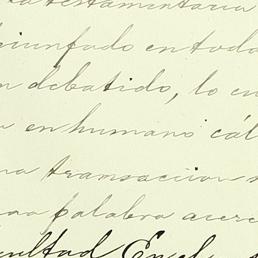 testamentaria
triunfado en toda
debatido, lo
en humano cál
na transaccion
palabra acerc
cultad En el